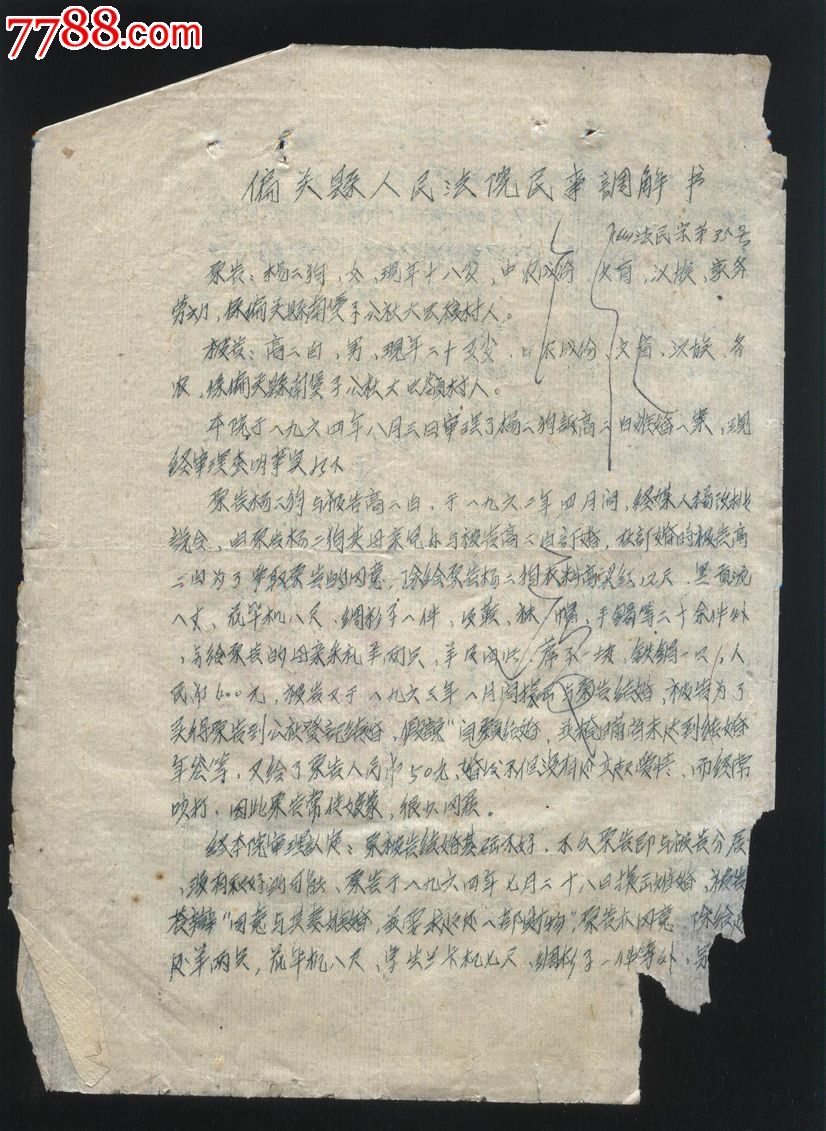 7788.com
偏关縣人民法院民事調解书
法民宗第35号
原告：楊二狗，女，现年十八岁，中农成份，文盲，汉族，家务
劳动，係偏关縣南堡子公社大
被告：高二白，男，现年二十五岁，中农成份，文盲，汉族，务
农，係偏关縣南堡子公社大 村人。
本院于一九六四年八月三日审理了楊二狗訴高二白離婚一案，现
经审理查明事实如下
原告楊二狗与被告高二白，于一九六二年四月间，经媒人楊改桃
説合，由原告楊二狗其母亲包办与被告高二白訂婚，在訂婚时被告高
二白为了争取原告的同意，除给原告楊二狗衣料高梁红12尺，黑
八丈，花华机八尺，绸衫子一件， 袜，帽，手鐲等二十余件外
，另给原告的母亲 羊两只， 一块，鉄鍋一口，人
民币600元，被告又于一九六三年八月间提出与原告结婚，被告为了
买得原告到公社登記结婚，假説“自愿结婚，並 瞒尚未达到结婚
年令等，又给了原告人民币50元，婚后不但没有建立起感情，而经常
吵打，因此原告常住娘家，很少同居。
经本院审理认定：原被告结婚基础不好，不久原告即与被告分居
，没有和好的可能，原告于一九六四年七月二十八日提出離婚，被告
答辯“同意与其妻離婚，並要求 一部财物”，原告亦同意，除给
羊两只，花华机八尺，学生兰卡机七尺，绸衫子一件等外，另